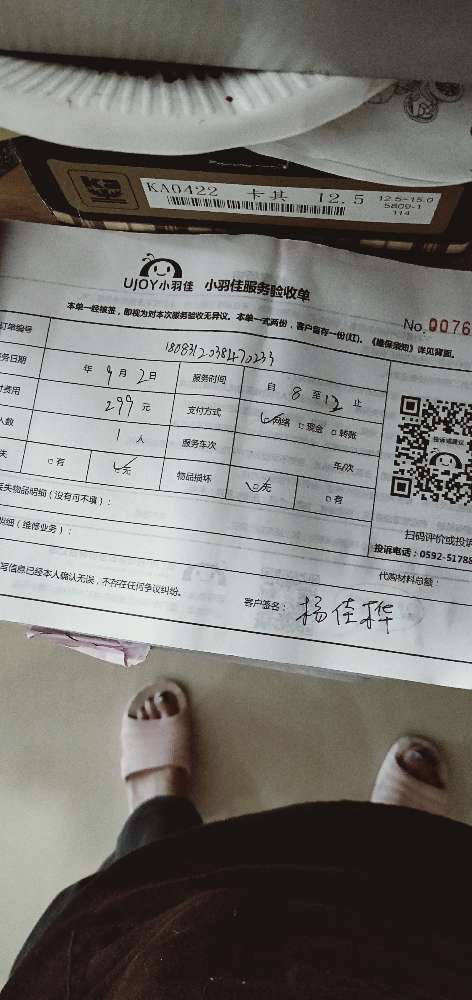 KA0422 卡其 12.5
12.5-15.0
5809-1
114
UJOY小羽佳 小羽佳服务验收单
No.0076
本单一经核签，即视为对本次服务验收无异议。本单一式两份，客户留存一份(红)。《维保须知》详见背面。
订单编号 1808312038470233
务日期 年 9 月 2 日 服务时间 自 8 至 12 止
付费用 299 元 支付方式 ☑网络 □现金 □转账
人数 1 人 服务车次 年/次
失 □有 ☑无 物品损坏 ☑无 □有
丢失物品明细（没有可不填）：
明细（维修业务）：
投诉或建议
扫码评价或投诉
投诉电话：0592-51788
代购材料总额：
写信息已经本人确认无误，不存在任何争议纠纷。
客户签名： 杨佳桦